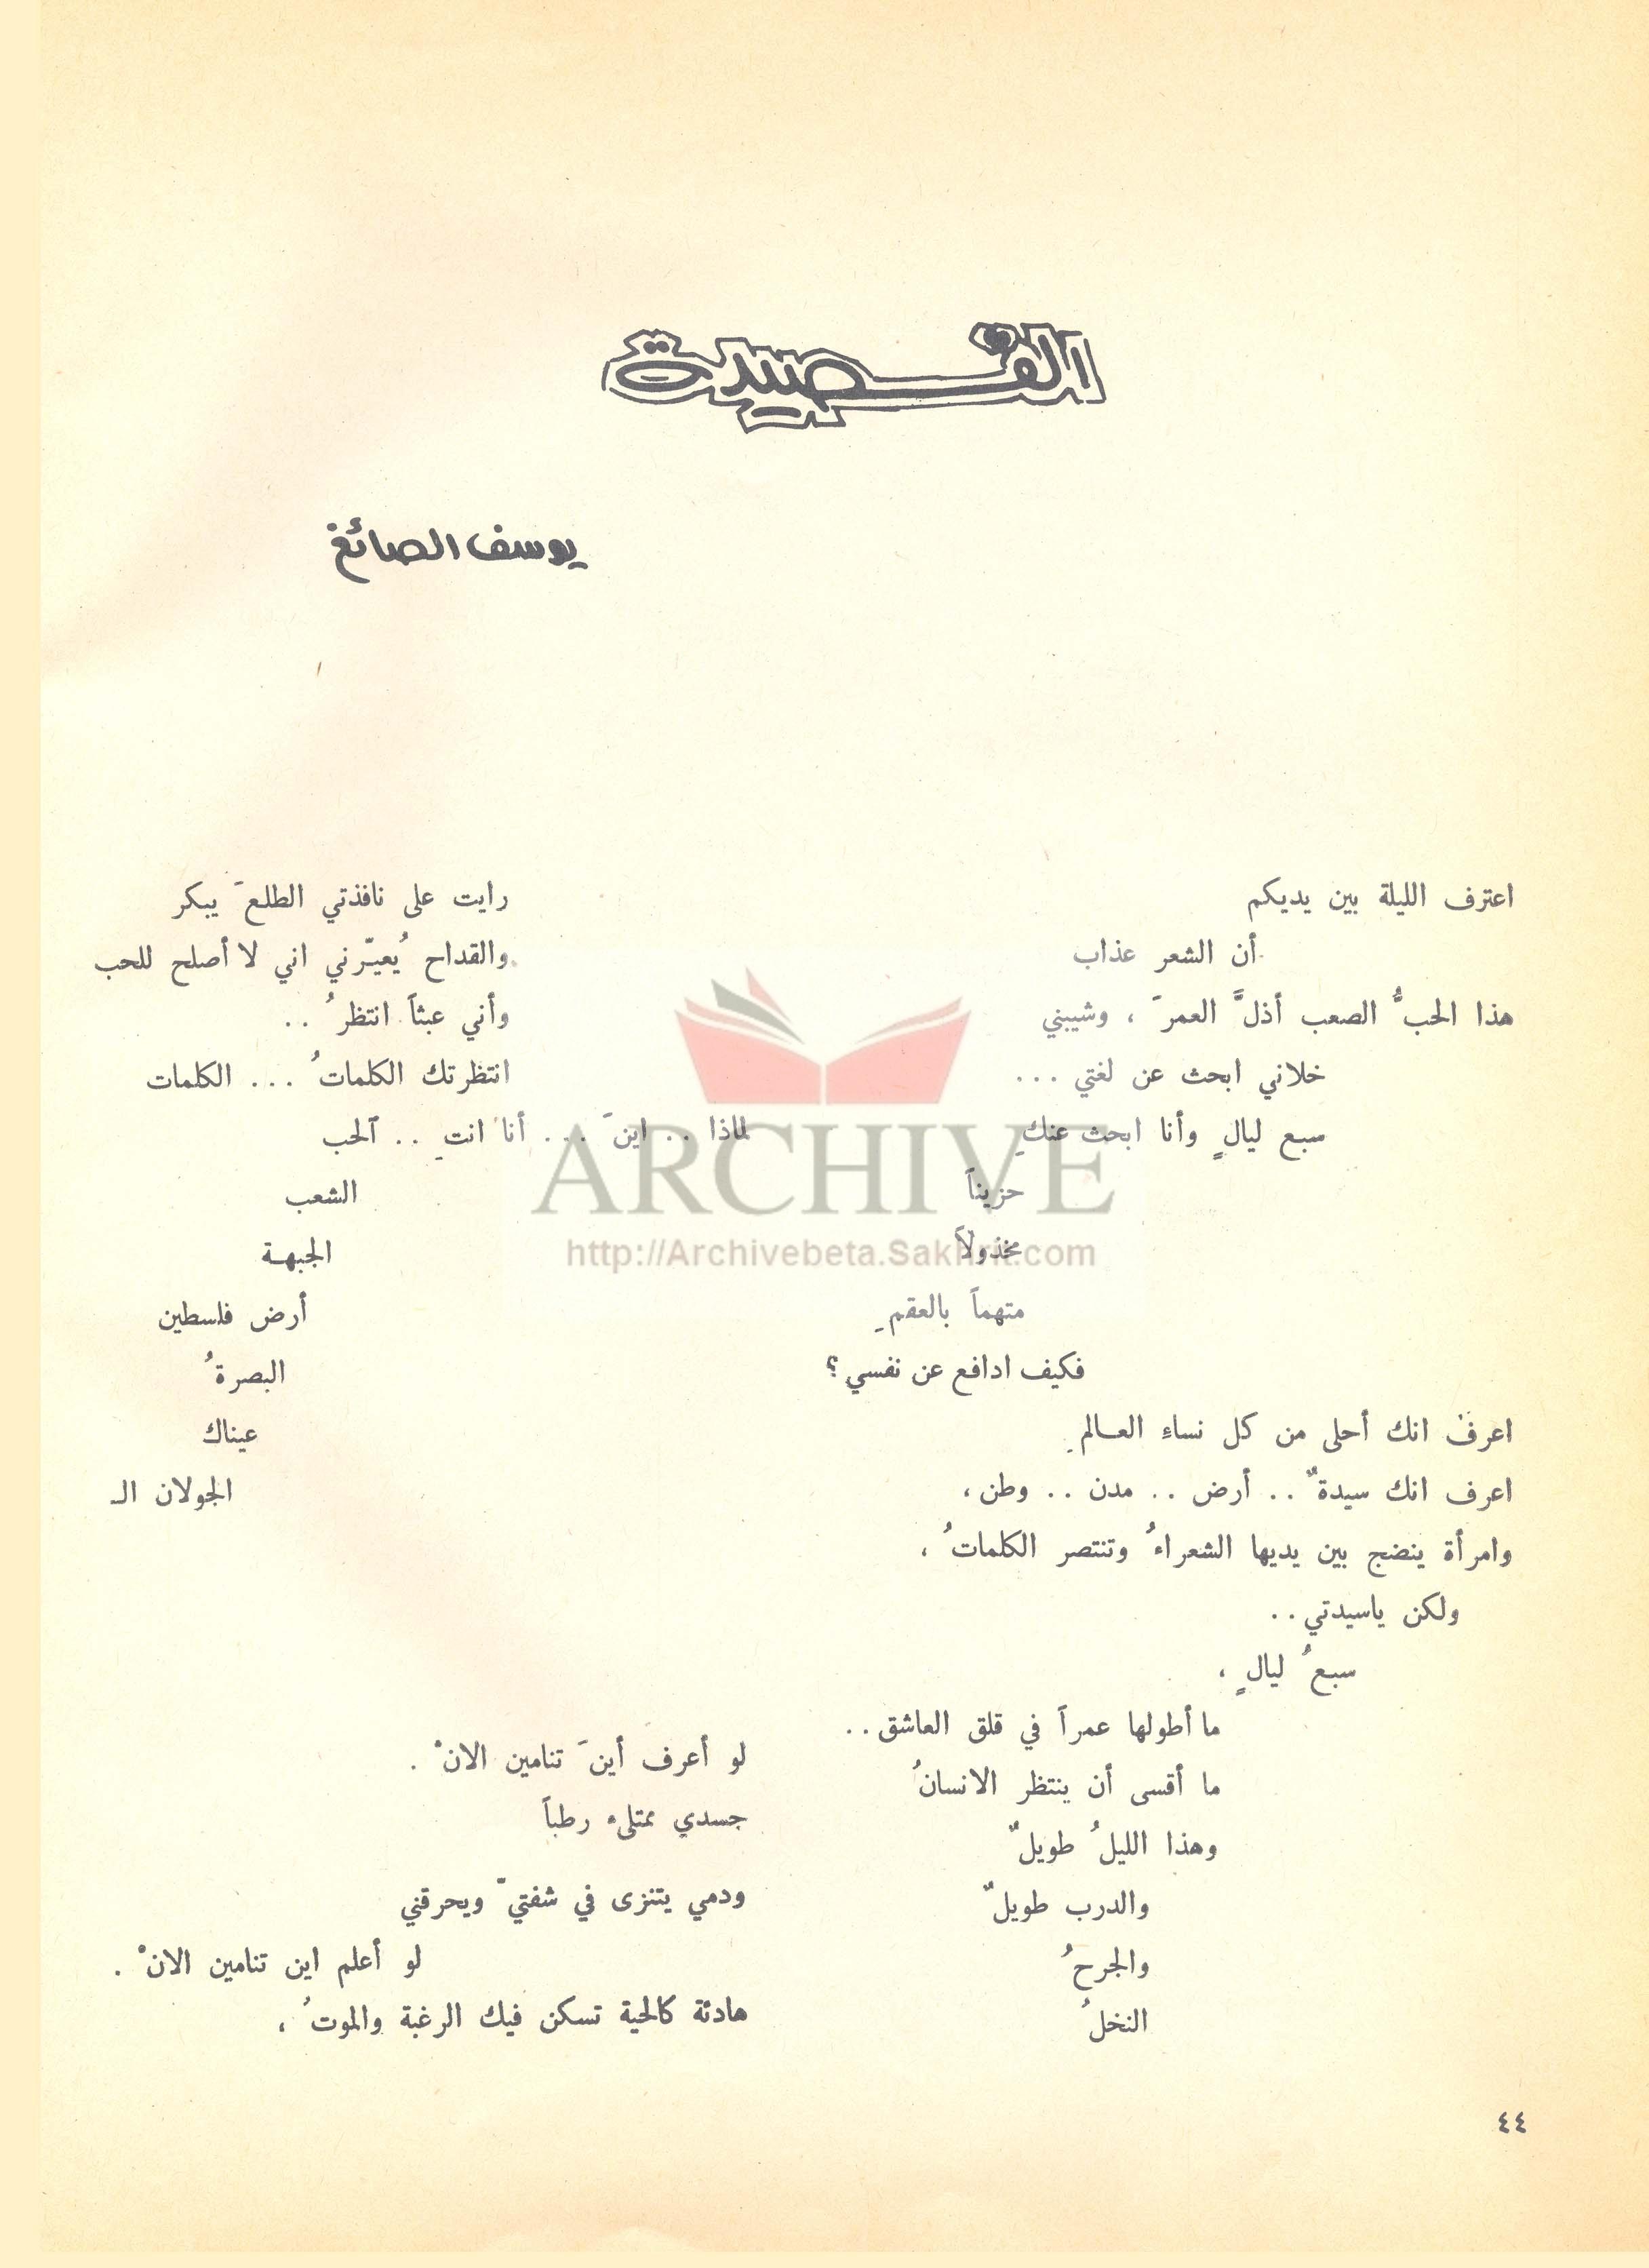 القصيدة
يوسف الصائغ
اعترف الليلة بين يديكم
أن الشعر عذاب
هذا الحبُّ الصعب أذلَّ العمرَ ، وشيبني
خلاني ابحث عن لغتي ...
سبع ليالٍ وأنا ابحث عنكِ
حزيناً
مخذولاً
متهماً بالعقمِ
فكيف ادافع عن نفسي ؟
اعرفُ انك أحلى من كل نساءِ العـالمِ
اعرف انك سيدةٌ .. أرض .. مدن .. وطن ،
وامرأة ينضج بين يديها الشعراءُ وتنتصر الكلماتُ ،
ولكن ياسيدتي ..
سبعُ ليالٍ ،
ما أطولها عمراً في قلق العاشق ..
ما أقسى أن ينتظر الانسانُ
وهذا الليلُ طويلٌ
والدرب طويلٌ
والجرحُ
النخلُ
رايت على نافذتي الطلعَ يبكر
والقداح يُعيّرني اني لا أصلح للحب
وأني عبثاً انتظرُ ..
انتظرتك الكلماتُ ... الكلمات
لماذا .. اينَ ... أنا انتِ .. آلحب
الشعب
الجبهـة
أرض فلسطين
البصرةُ
عيناك
الجولان الـ
لو أعرف أينَ تنامين الانْ .
جسدي ممتلىء رطباً
ودمي يتنزى في شفتيّ ويحرقني
لو أعلم اين تنامين الانْ .
هادئة كالحية تسكن فيك الرغبة والموتُ ،
٤٤
ARCHIVE
http://Archivebeta.Sakhrit.com